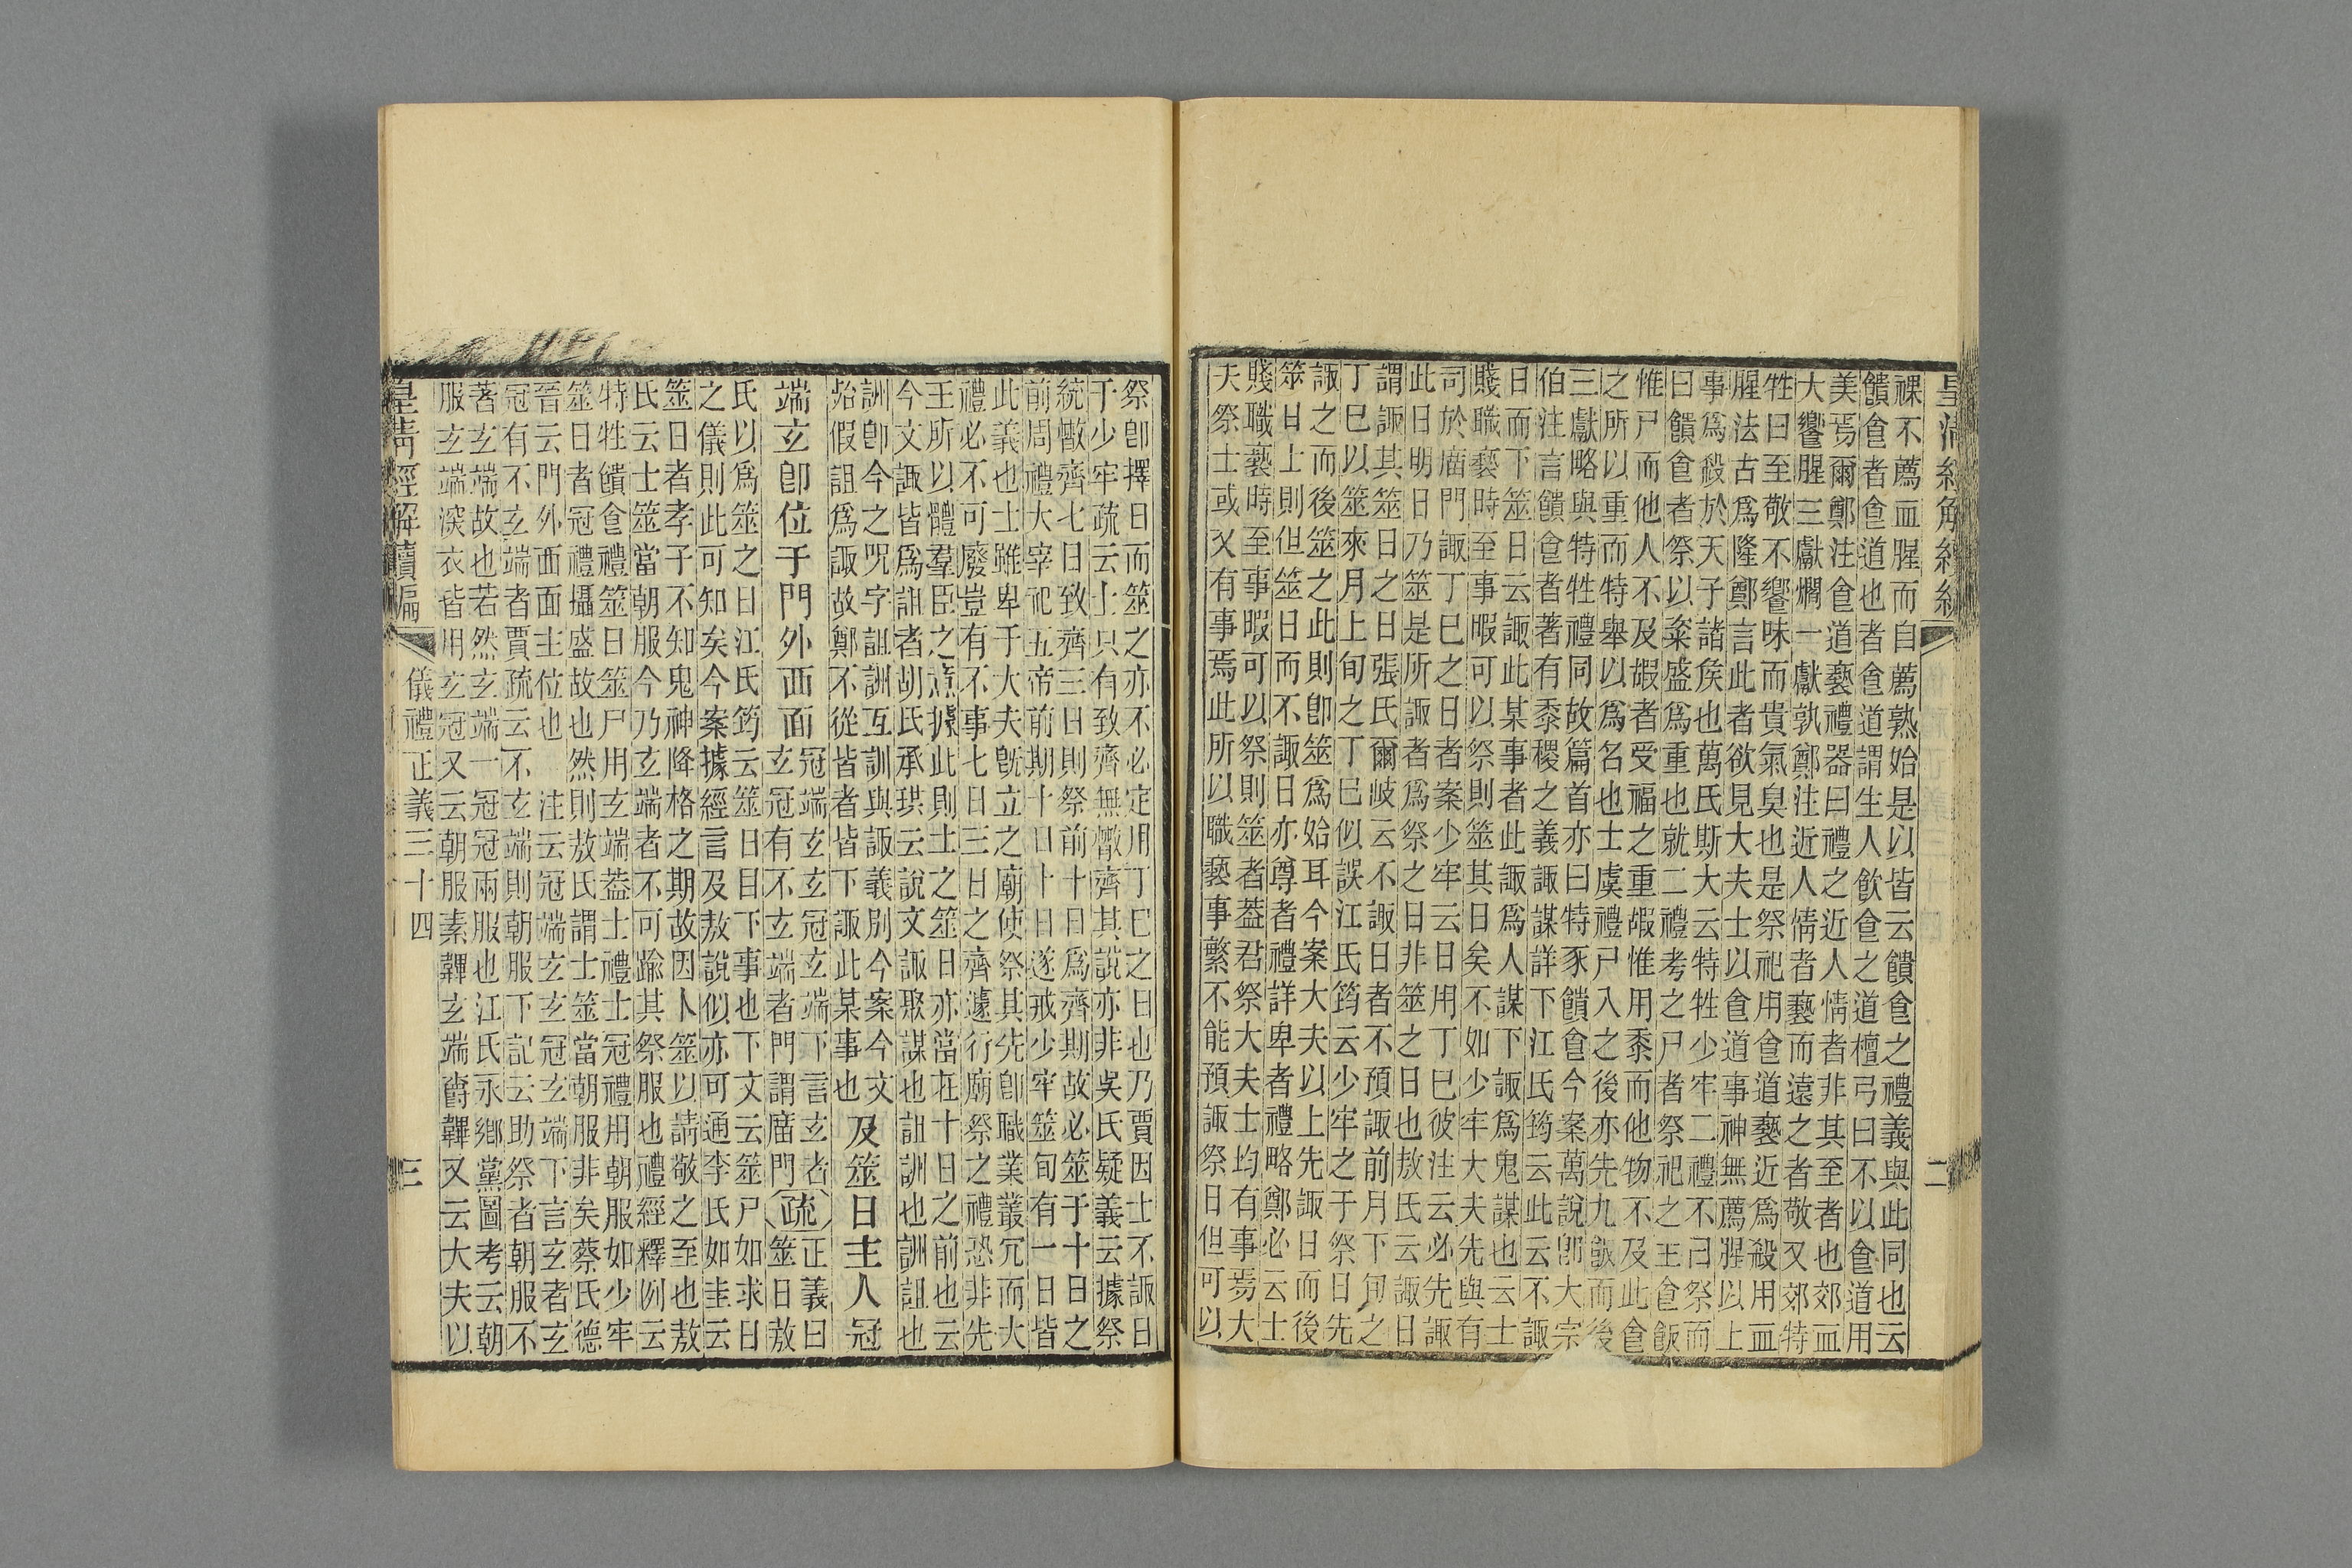 祼不薦血腥而自薦熟始是以皆云饋食之禮義與此同也云
饋食者食道也者食道謂生人飲食之道檀弓曰不以食道用
美焉爾鄭注食道褻禮器曰禮之近人情者非其至者也郊血
大饗腥三獻爓一獻孰鄭注近人情者褻而遠之者敬又郊特
牲曰至敬不饗味而貴氣臭也是祭祀用食道褻近爲殺用血
腥法古爲隆鄭言此者欲見大夫士以食道事神無薦腥以上
事爲殺於天子諸矦也萬氏斯大云特牲少牢二禮不曰祭而
曰饋食者祭以粢盛爲重也就二禮考之尸者祭祀之王食飯
惟尸而他人不及嘏者受福之重嘏惟用黍而他物不及此食
之所以重而特舉以爲名也士虞禮尸入之後亦先九飯而後
三獻略與特牲禮同故篇首亦曰特豕饋食今案萬說卽大宗
伯注言饋食者著有黍稷之義諏謀詳下江氏筠云此云不諏
日而下筮日云諏此某事者此諏爲人謀下諏爲鬼謀也云士
賤職褻時至事暇可以祭則筮其日矣不如少牢大夫先與有
司於庿門諏丁巳之日者案少牢云日用丁巳彼注云必先諏
此日明日乃筮是所諏者爲祭之日非筮之日也敖氏云諏日
謂諏其筮日之日張氏爾岐云不諏日者不預諏前月下旬之
丁巳以筮來月上旬之丁巳似誤江氏筠云少牢之于祭日先
諏之而後筮之此則卽筮爲始耳今案大夫以上先諏日而後
筮日上則但筮日而不諏日亦尊者禮詳卑者禮略鄭必云士
賤職褻時至事暇可以祭則筮者葢君祭大夫士均有事焉大
夫祭士或又有事焉此所以職褻事繁不能預諏祭日但可以
祭卽擇日而筮之亦不必定用丁巳之日也乃賈因士不諏日
于少牢疏云士只有致齊無散齊其說亦非吳氏疑義云據祭
統散齊七日致齊三日則祭前十日爲齊期故必筮于十日之
前周禮大宰祀五帝前期十日十日遂戒少牢筮旬有一日皆
此義也士雖卑于大夫旣立之廟使祭其先卽職業叢冗而大
禮必不可廢豈有不事七日三日之齊遽行廟祭之禮恐非先
王所以體羣臣之意據此則士之筮日亦當在十日之前也云
今文諏皆爲詛者胡氏承珙云說文諏聚謀也詛訓也訓詛也
訓卽今之咒字詛訓互訓與諏義別今案今文
始假詛爲諏故鄭不從皆者皆下諏此某事也及筮日主人冠
端玄卽位于門外西面冠端玄玄冠玄端下言玄者
玄冠有不玄端者門謂庿門疏正義曰
筮日敖
氏以爲筮之日江氏筠云筮日目下事也下文云筮尸如求日
之儀則此可知矣今案據經言及敖說似亦可通李氏如圭云
筮日者孝子不知鬼神降格之期故因卜筮以請敬之至也敖
氏云士筮當朝服今乃玄端者不可踰其祭服也禮經釋例云
特牲饋食禮筮日筮尸用玄端葢士禮士冠禮用朝服如少牢
筮日者冠禮攝盛故也然則敖氏謂士筮當朝服非矣蔡氏德
晉云門外西面主位也 注云冠端玄玄冠玄端下言玄者玄
冠有不玄端者賈疏云不玄端則朝服下記云助祭者朝服不
著玄端故也若然玄端一冠冠兩服也江氏永鄉黨圖考云朝
服玄端深衣皆用玄冠又云朝服素韠玄端爵韠又云大夫以
皇清經解續編
儀禮正義三十四
三